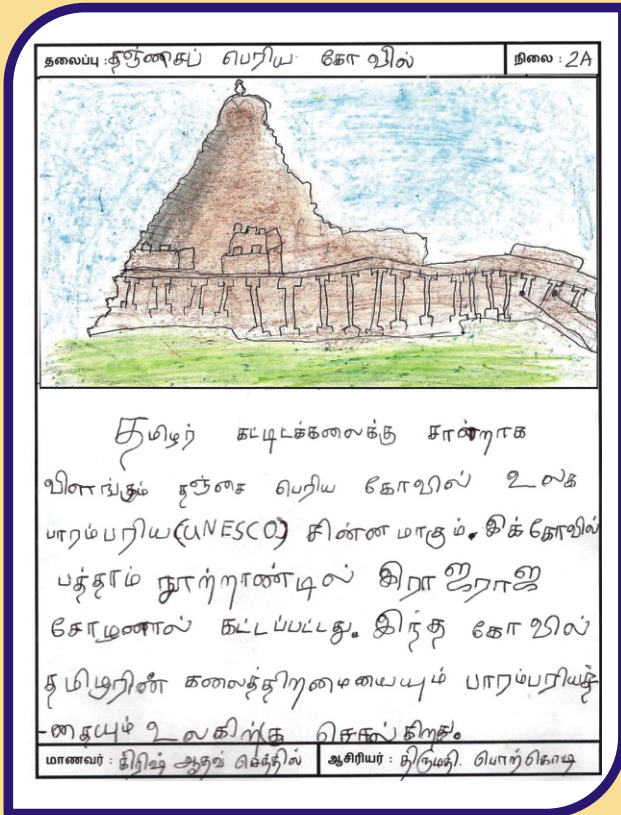 தலைப்பு : தஞ்சைப் பெரிய கோவில்
நிலை : 2A
தமிழர் கட்டிடக்கலைக்கு சான்றாக
விளங்கும் தஞ்சை பெரிய கோவில் உலக
பாரம்பரிய (UNESCO) சின்னமாகும். இக்கோவில்
பத்தாம் நூற்றாண்டில் இராஜராஜ
சோழனால் கட்டப்பட்டது. இந்த கோவில்
தமிழரின் கலைத்திறமையையும் பாரம்பரியத்
-தையும் உலகிற்கு
மாணவர் : கிரிஷ் ஆதவ் செந்தில்
ஆசிரியர் : திருமதி. பொற்கொடி